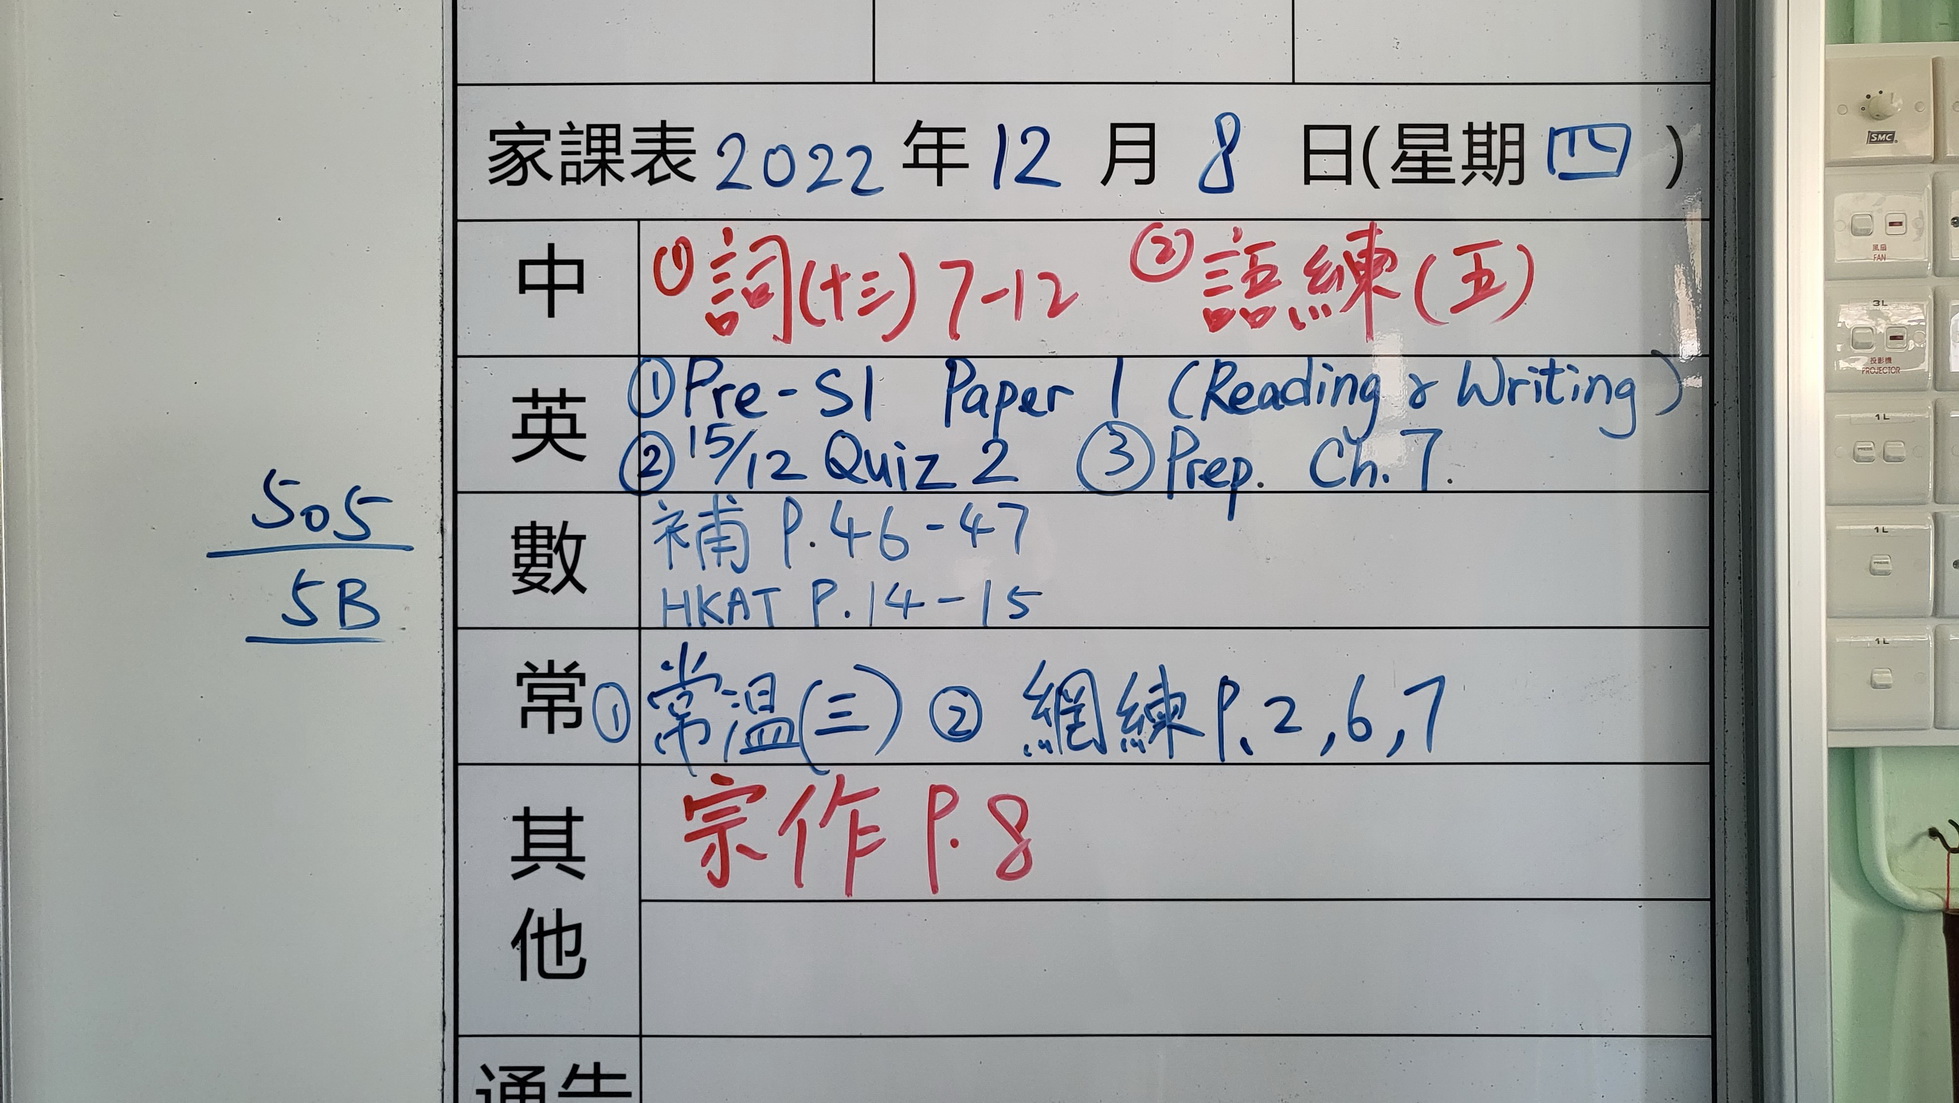 家課表 2022 年 12 月 8 日(星期 四 )
中 ① 詞(十三) 7-12 ② 語練(五)
英 ① Pre-S1 Paper 1 (Reading & Writing)
② 15/12 Quiz 2 ③ Prep. Ch.7.
數 補 P.46-47
HKAT P.14-15
常 ① 常溫(三) ② 網練 P.2,6,7
其他 宗作 P.8
通告
505
5B
SMC
風扇
FAN
3L
投影機
PROJECTOR
1L
1L
1L